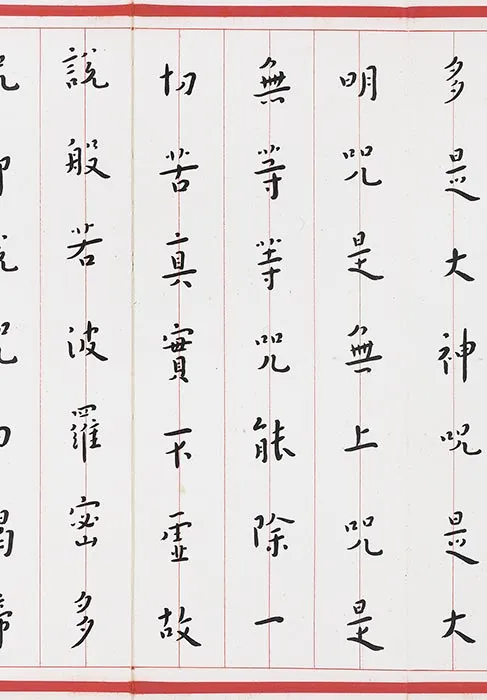 多是大神咒是大
明咒是無上咒是
無等等咒能除一
切苦真實不虛故
說般若波羅密多
咒即說咒曰